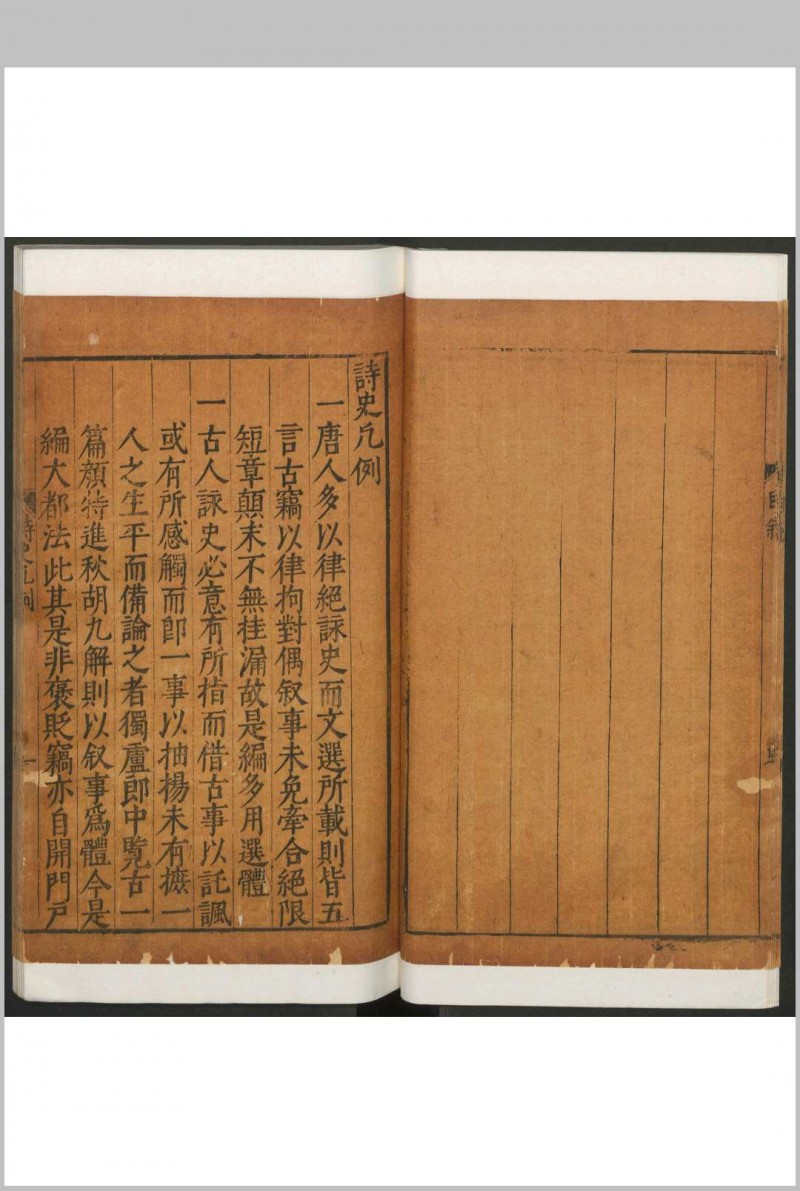 詩史凡例
一唐人多以律絕詠史而文選所載則皆五
言古竊以律拘對偶叙事未免牽合絕限
短章顛末不無挂漏故是編多用選體
一古人詠史必意有所指而借古事以託諷
或有所感觸而即一事以抽揚未有摭一
人之生平而備論之者獨盧郎中覧古一
篇顏特進秋胡九解則以叙事爲體今是
編大都法此其是非褒貶竊亦自開門戸